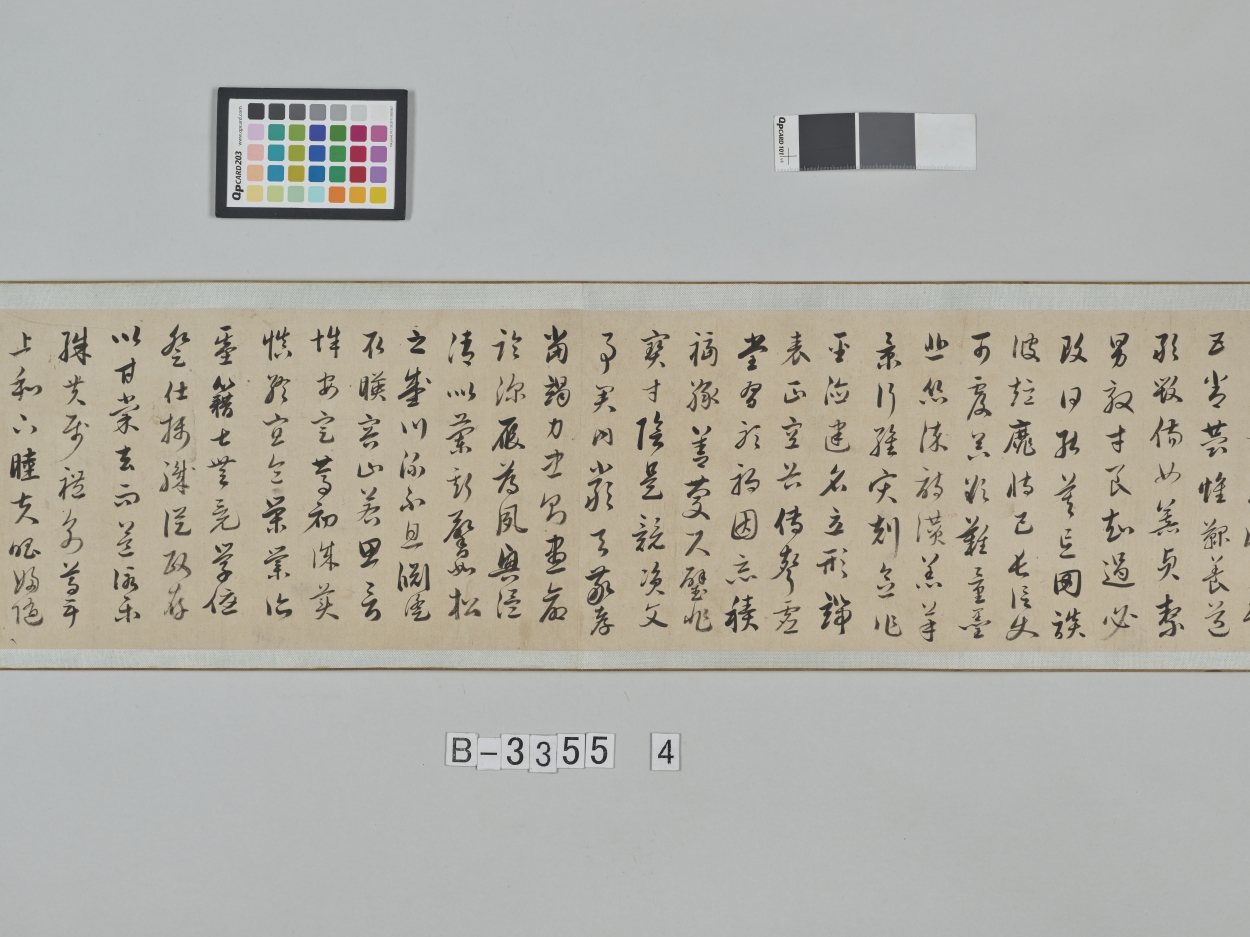 QPCARD 203
www.qpcard.com
QPCARD 101
五常恭惟鞠養豈
敢毀傷女慕貞潔
男效才良知過必
改得能莫忘罔談
彼短靡恃己長信使
可覆器欲難量墨
悲絲染詩讚羔羊
景行維賢剋念作
聖德建名立形端
表正空谷傳聲虛
堂習聽禍因惡積
福緣善慶尺璧非
寶寸陰是競資父
事君曰嚴與敬孝
當竭力忠則盡命
臨深履薄夙興溫
清似蘭斯馨如松
之盛川流不息淵澄
取暎容止若思言
辭安定篤初誠美
慎終宜令榮業所
基籍甚無竟學優
登仕攝職從政存
以甘棠去而益詠樂
殊貴賤禮別尊卑
上和下睦夫唱婦隨
B-3355 4